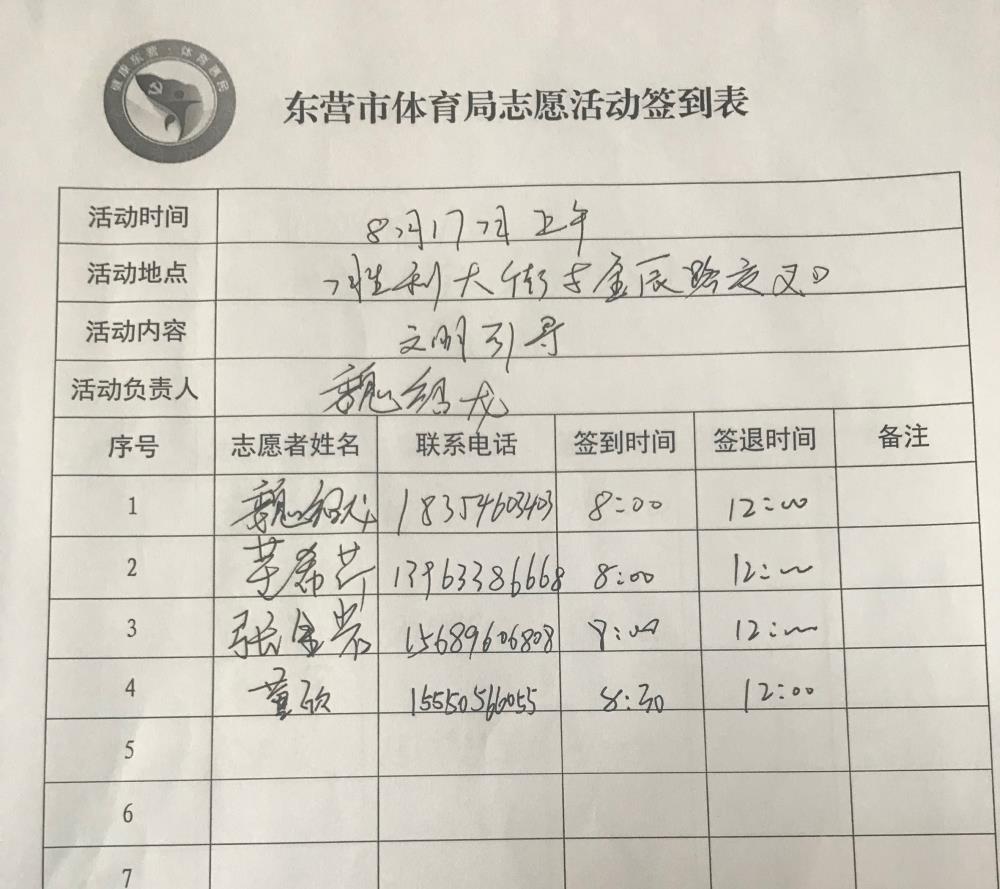 健康东营·体育惠民
东营市体育局志愿活动签到表
活动时间 8月17日上午
活动地点 胜利大街与金辰路交叉口
活动内容 文明引导
活动负责人 魏绍龙
序号 志愿者姓名 联系电话 签到时间 签退时间 备注
1 魏绍龙 18354603403 8:00 12:00
2 13963386668 8:00 12:00
3 张金岩 15689606808 8:00 12:00
4 董欣 15550566055 8:30 12:00
5
6
7